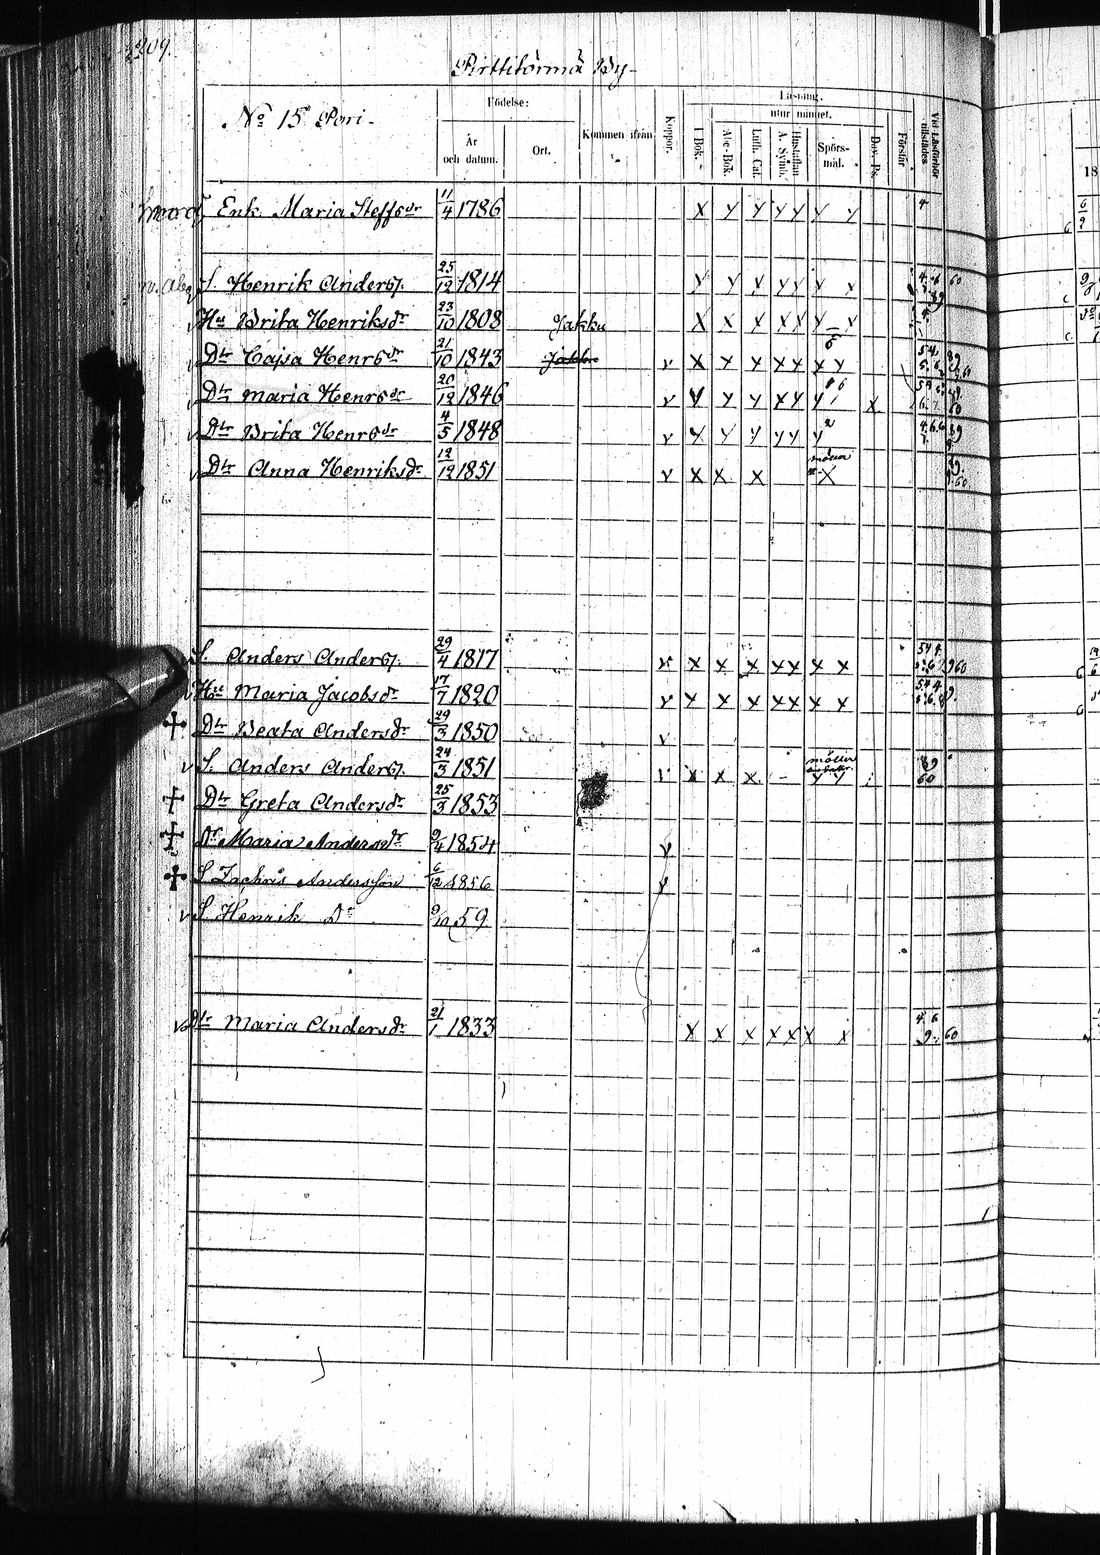 209.
Pirttitörmä By-
No 15 Pori-
Födelse:
År och datum.
Ort.
Kommen ifrån
Koppor.
Läsning,
utur minnet.
I Bok.
Abc-Bok
Luth. Cat.
Hustaflan A. Symb.
Spörs-mål.
Dav. Ps.
Förstår
Vid Läsförhör tillstädes
Enk. Maria Steffsdr 11/4 1786 X y y y y y y 4
S. Henrik Anders. 25/12 1814 y y x y y x x 60
Hu Brita Henriksdr 23/10 1808 Jakku X x x x x y y
Dtr Cajsa Henrsdr 21/10 1843 Jakku v x y y x x x y
Dtr Maria Henrsdr 20/12 1846 v y y y x y y x
Dtr Brita Henrsdr 4/5 1848 v y y y y y y
Dtr Anna Henriksdr 12/12 1851 v x x x X
S. Anders Anders. 29/4 1817 v x x x x x x x
Hu Maria Jacobsdr 17/7 1820 v x x x x x x x
Dtr Beata Andersdr 29/3 1850 v
S. Anders Anders. 24/3 1851 v x x x - y y
Dtr Greta Andersdr 25/3 1853
Dr Maria Andersdr 9/4 1854 v
S Zachris Andersson 6/12 1856 v
S Henrik Do 9/10 59
Dtr Maria Andersdr 21/1 1833 x x x x x x x 4. 6. 9. 60